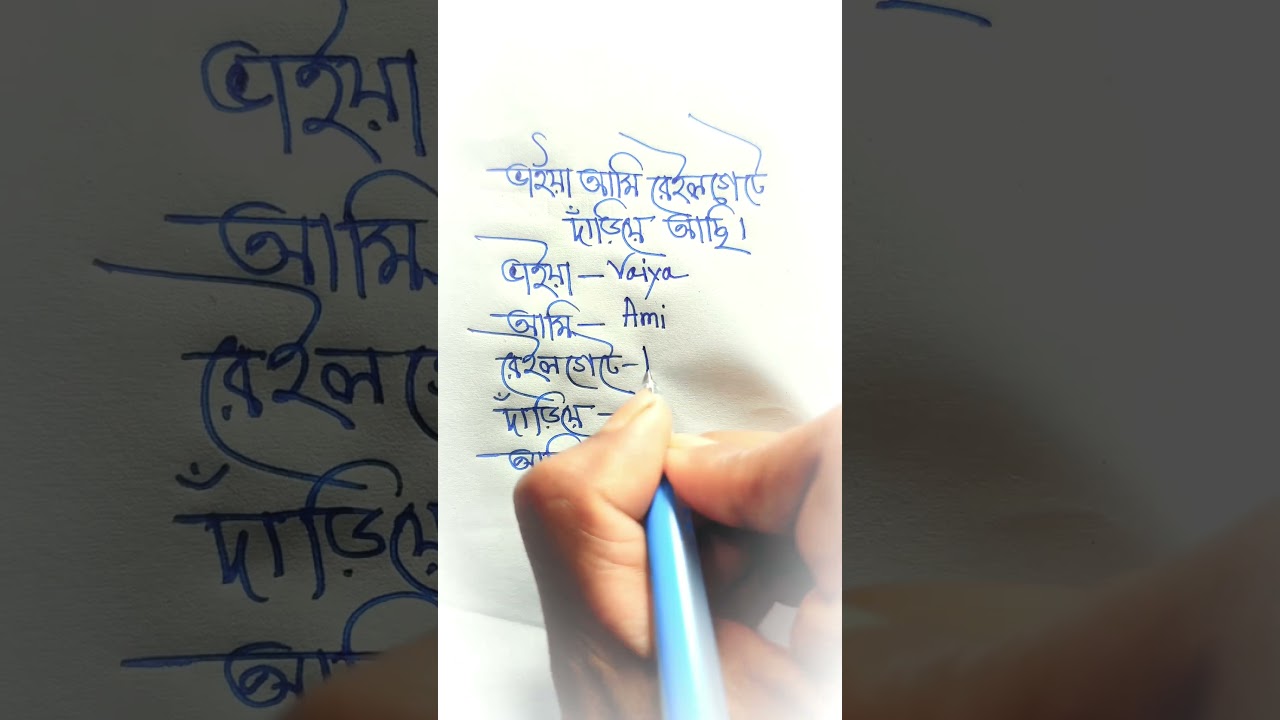 ভাইয়া আমি রেইলগেটে
দাঁড়িয়ে আছি।
ভাইয়া – Vaiya
আমি – Ami
রেইলগেটে –
দাঁড়িয়ে –